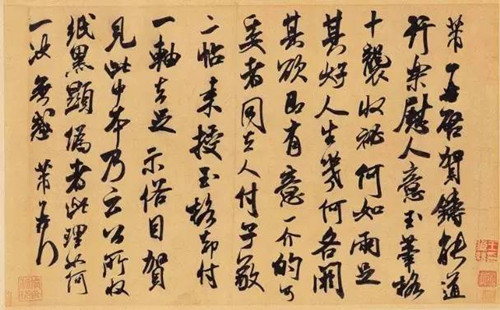 芾再啓賀鑄能道
行樂慰人意玉筆格
十襲收秘何如兩足
其好人生幾何各闕
其欲即有意一介的可
委者同去人付子敬
二帖來授玉格却付
一軸去足示俗目賀
見此中本乃云公所收
紙黑顯偽者此理如何
一決無惑芾